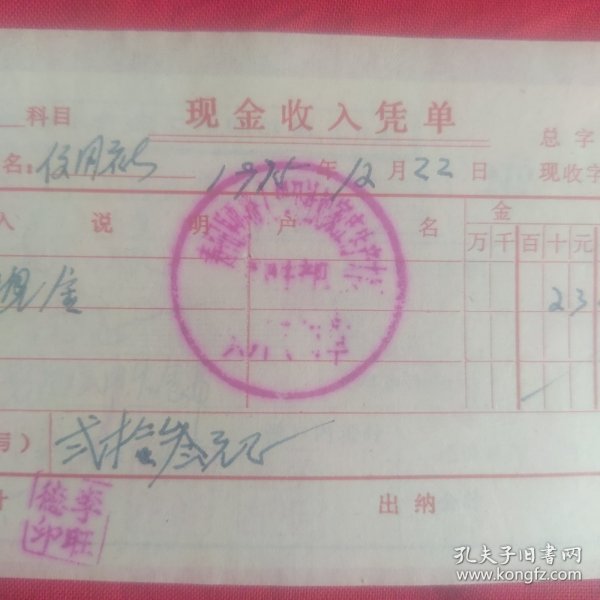 科目 现金收入凭单 总字
名：信用社 1975年12月22日 现收字
入说明 户名 金
万千百十元
现金 23
弍拾叁元正
出纳
李旺德印
孔夫子旧书网
www.kongfz.com